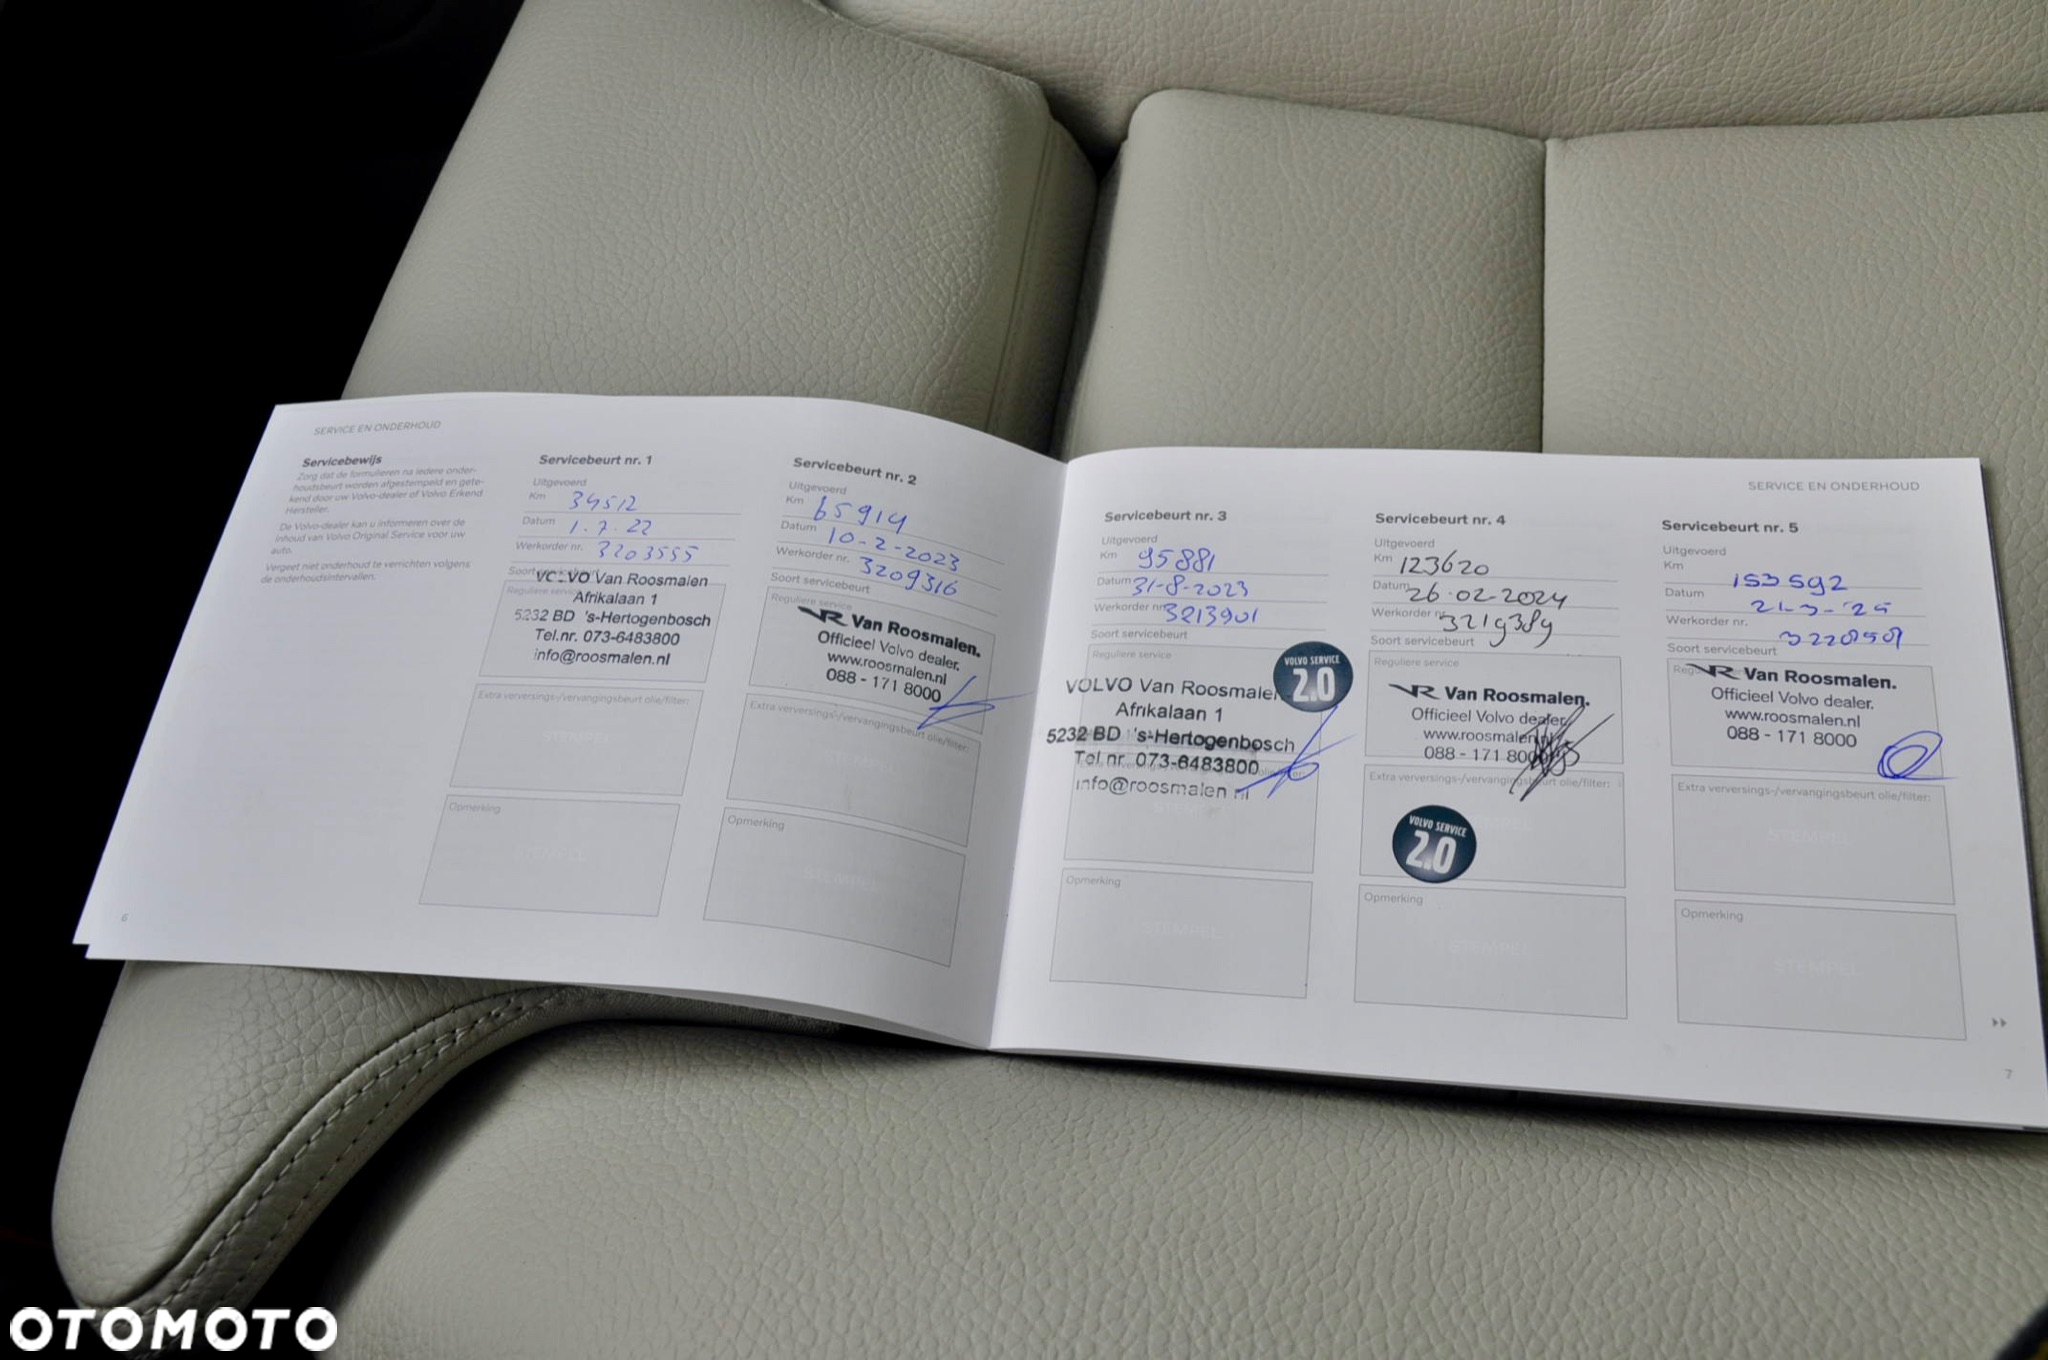 SERVICE EN ONDERHOUD
Servicebewijs
Zorg dat de formulieren na iedere onder-
houdsbeurt worden afgestempeld en gete-
kend door uw Volvo-dealer of Volvo Erkend
Hersteller.
De Volvo-dealer kan u informeren over de
inhoud van Volvo Original Service voor uw
auto.
Vergeet niet onderhoud te verrichten volgens
de onderhoudsintervallen.
6
Servicebeurt nr. 1
Uitgevoerd
Km 34512
Datum 1.7.22
Werkorder nr. 3203555
Soort servicebeurt
Reguliere service
VOLVO Van Roosmalen
Afrikalaan 1
5232 BD 's-Hertogenbosch
Tel.nr. 073-6483800
info@roosmalen.nl
Extra verversings-/vervangingsbeurt olie/filter:
STEMPEL
Opmerking
STEMPEL
Servicebeurt nr. 2
Uitgevoerd
Km 65914
Datum 10-2-2023
Werkorder nr. 3209316
Soort servicebeurt
Reguliere service
VR Van Roosmalen.
Officieel Volvo dealer.
www.roosmalen.nl
088 - 171 8000
Extra verversings-/vervangingsbeurt olie/filter:
STEMPEL
Opmerking
STEMPEL
SERVICE EN ONDERHOUD
Servicebeurt nr. 3
Uitgevoerd
Km 95881
Datum 31-8-2023
Werkorder nr. 3213901
Soort servicebeurt
Reguliere service
VOLVO SERVICE
2.0
VOLVO Van Roosmalen
Afrikalaan 1
5232 BD 's-Hertogenbosch
Tel.nr. 073-6483800
info@roosmalen.nl
Extra verversings-/vervangingsbeurt olie/filter:
STEMPEL
Opmerking
STEMPEL
Servicebeurt nr. 4
Uitgevoerd
Km 123620
Datum 26-02-2024
Werkorder nr. 3219389
Soort servicebeurt
Reguliere service
VR Van Roosmalen.
Officieel Volvo dealer.
www.roosmalen.nl
088 - 171 8000
Extra verversings-/vervangingsbeurt olie/filter:
STEMPEL
VOLVO SERVICE
2.0
Opmerking
STEMPEL
Servicebeurt nr. 5
Uitgevoerd
Km 153592
Datum
Werkorder nr.
Soort servicebeurt
VR Van Roosmalen.
Officieel Volvo dealer.
www.roosmalen.nl
088 - 171 8000
Extra verversings-/vervangingsbeurt olie/filter:
STEMPEL
Opmerking
STEMPEL
7
OTOMOTO